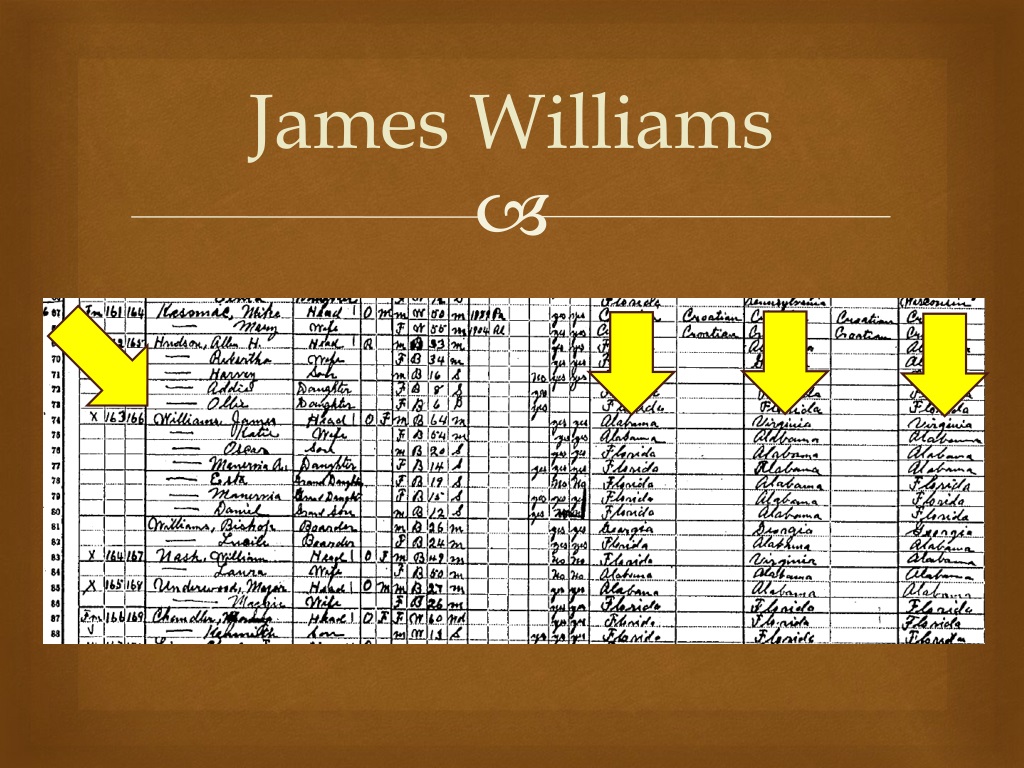 James Williams
Florida Pennsylvania Wisconsin
67 Fm 161 164 Kesomac, Mike Head O m m W 50 m 1889 Pa yes yes Croatian Croatian
Mary Wife F W 55 m 1904 Al yes yes Croatian Croatian
Hudson, Alla H. Head R m B 33 m yes yes
70 Rebertha Wife F B 34 m yes yes
71 Harvey Son m B 16 S no yes yes
72 Addie Daughter F B 8 S yes
73 Ollie Daughter F B 6 S yes Florida Florida Florida
74 X 163 166 Williams, James Head O F m B 64 m yes yes Alabama Virginia Virginia
75 Katie Wife F B 54 m yes yes Alabama Alabama Alabama
76 Oscar Son m B 20 S yes yes Florida Alabama Alabama
77 Manervia A. Daughter F B 14 S yes yes yes Florida Alabama Alabama
78 Esta Grand Daughter F B 19 S No No Florida Alabama Florida
79 Manervia Grand Daught F B 15 S yes yes Florida Alabama Florida
80 Daniel Grand Son m B 12 S yes Florida Alabama Florida
81 Williams, Bishop Boarder m B 26 m yes yes Georgia Georgia Georgia
82 Lucile Boarder F B 24 m yes yes Florida Alabama Alabama
83 X 164 167 Nash, William Head O F m B 49 m No No Florida Virginia Alabama
84 Laura Wife F B 50 m No No Alabama Alabama Alabama
85 X 165 168 Underwood, Major Head O m m B 27 m yes yes Alabama Alabama Alabama
86 Maggie Wife F B 26 m yes yes Florida Florida Florida
87 Fm 166 169 Chandler, Head O F F W 60 Wd yes yes Florida Florida Florida
88 Son m W 13 S yes yes yes Florida Florida Florida